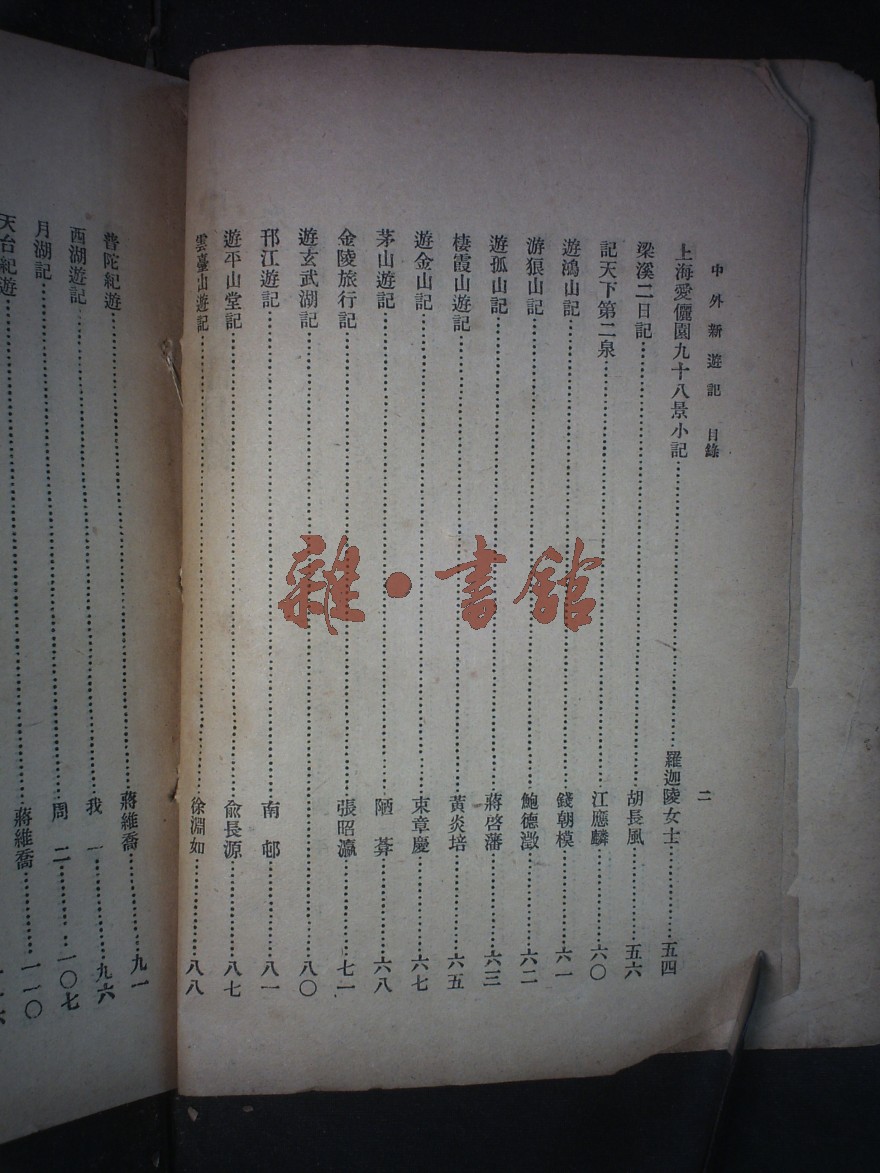 中外新遊記 目錄 二
上海愛儷園九十八景小記……羅迦陵女士……五四
梁溪二日記……胡長風……五六
記天下第二泉……江應麟……六〇
遊鴻山記……錢朝模……六一
游狼山記……鮑德澂……六二
遊孤山記……蔣啓藩……六三
棲霞山遊記……黃炎培……六五
遊金山記……束章慶……六七
茅山遊記……陋葊……六八
金陵旅行記……張昭瀛……七一
遊玄武湖記……八〇
邗江遊記……南邨……八一
遊平山堂記……俞長源……八七
雲臺山遊記……徐淵如……八八
普陀紀遊……蔣維喬……九一
西湖遊記……我一……九六
月湖記……周二……一〇七
天台紀遊……蔣維喬……一一〇
雜·書館